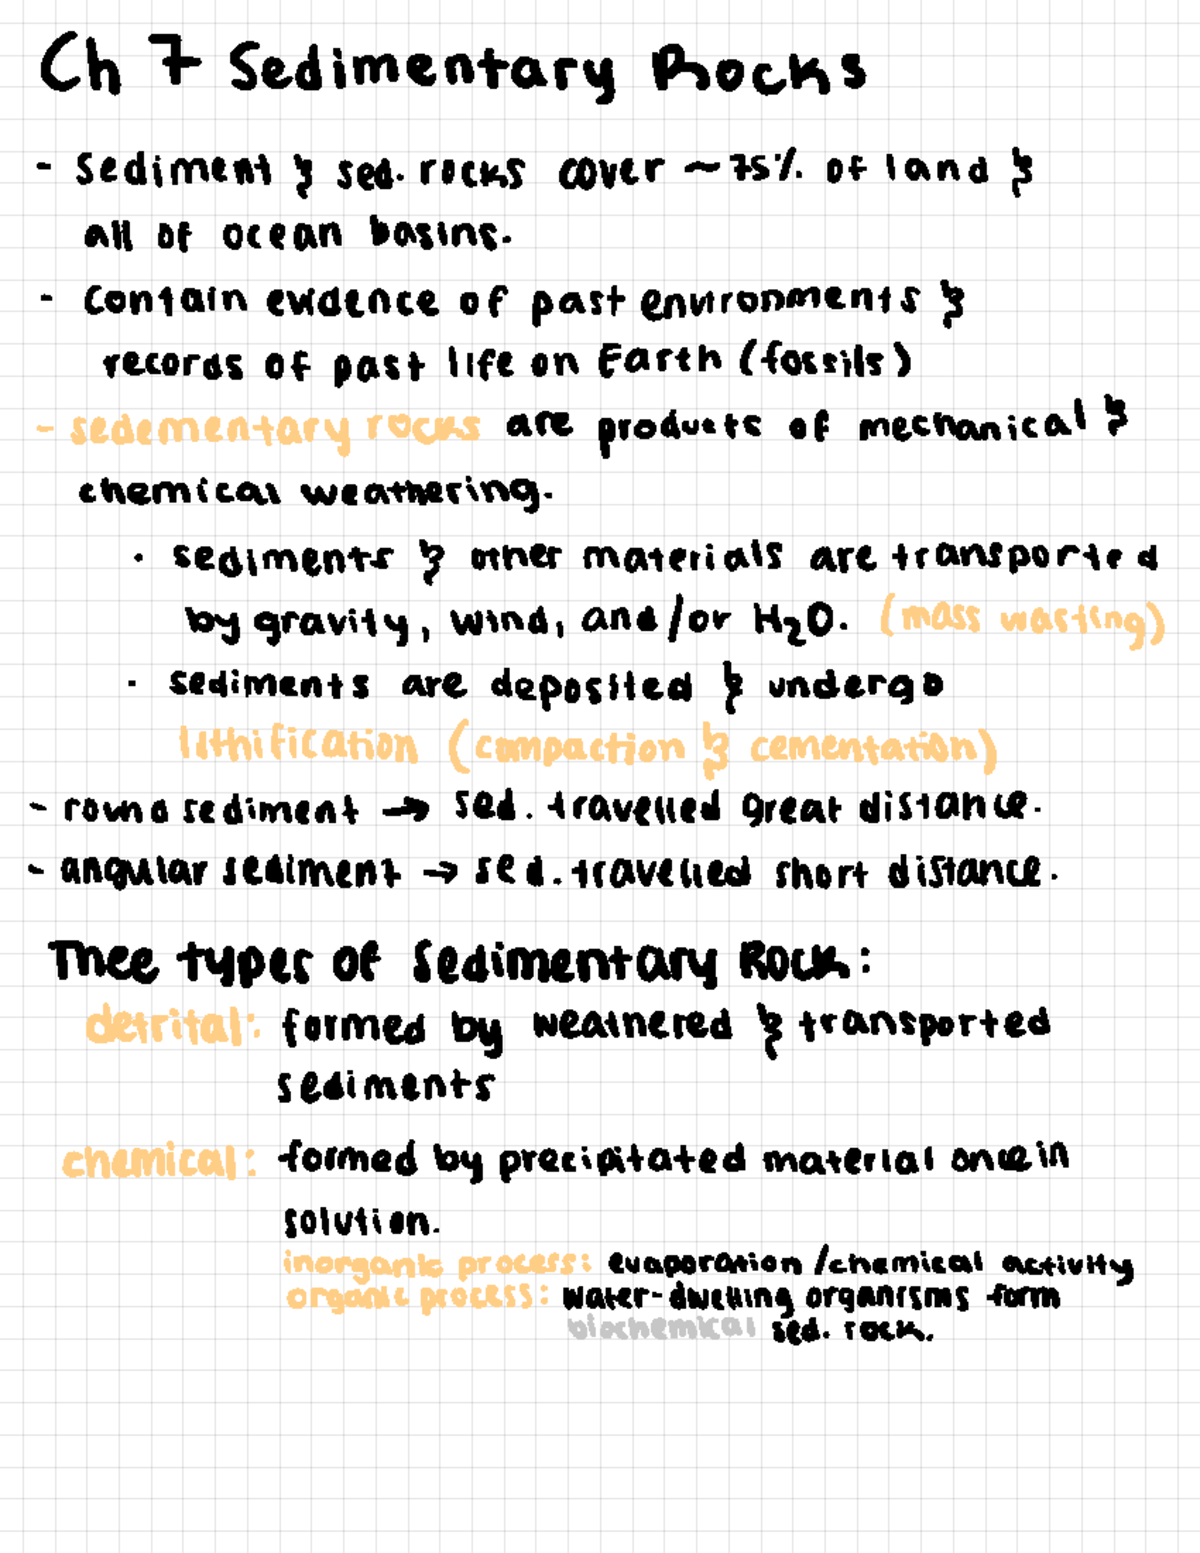 Ch 7 Sedimentary Rocks
- Sediment & sed. rocks cover ~75% of land &
all of ocean basins.
- Contain evidence of past environments &
records of past life on Earth (fossils)
- sedementary rocks are products of mechanical &
chemical weathering.
· sediments & other materials are transported
by gravity, wind, and/or H₂O. (mass wasting)
· sediments are deposited & undergo
lithification (compaction & cementation)
- round sediment → sed. travelled great distance.
- angular sediment → sed. travelled short distance.
Thee types of Sedimentary Rock:
detrital: formed by weathered & transported
sediments
chemical: formed by precipitated material once in
solution.
inorganic process: evaporation /chemical activity
organic process: water-dwelling organisms form
biochemical sed. rock.